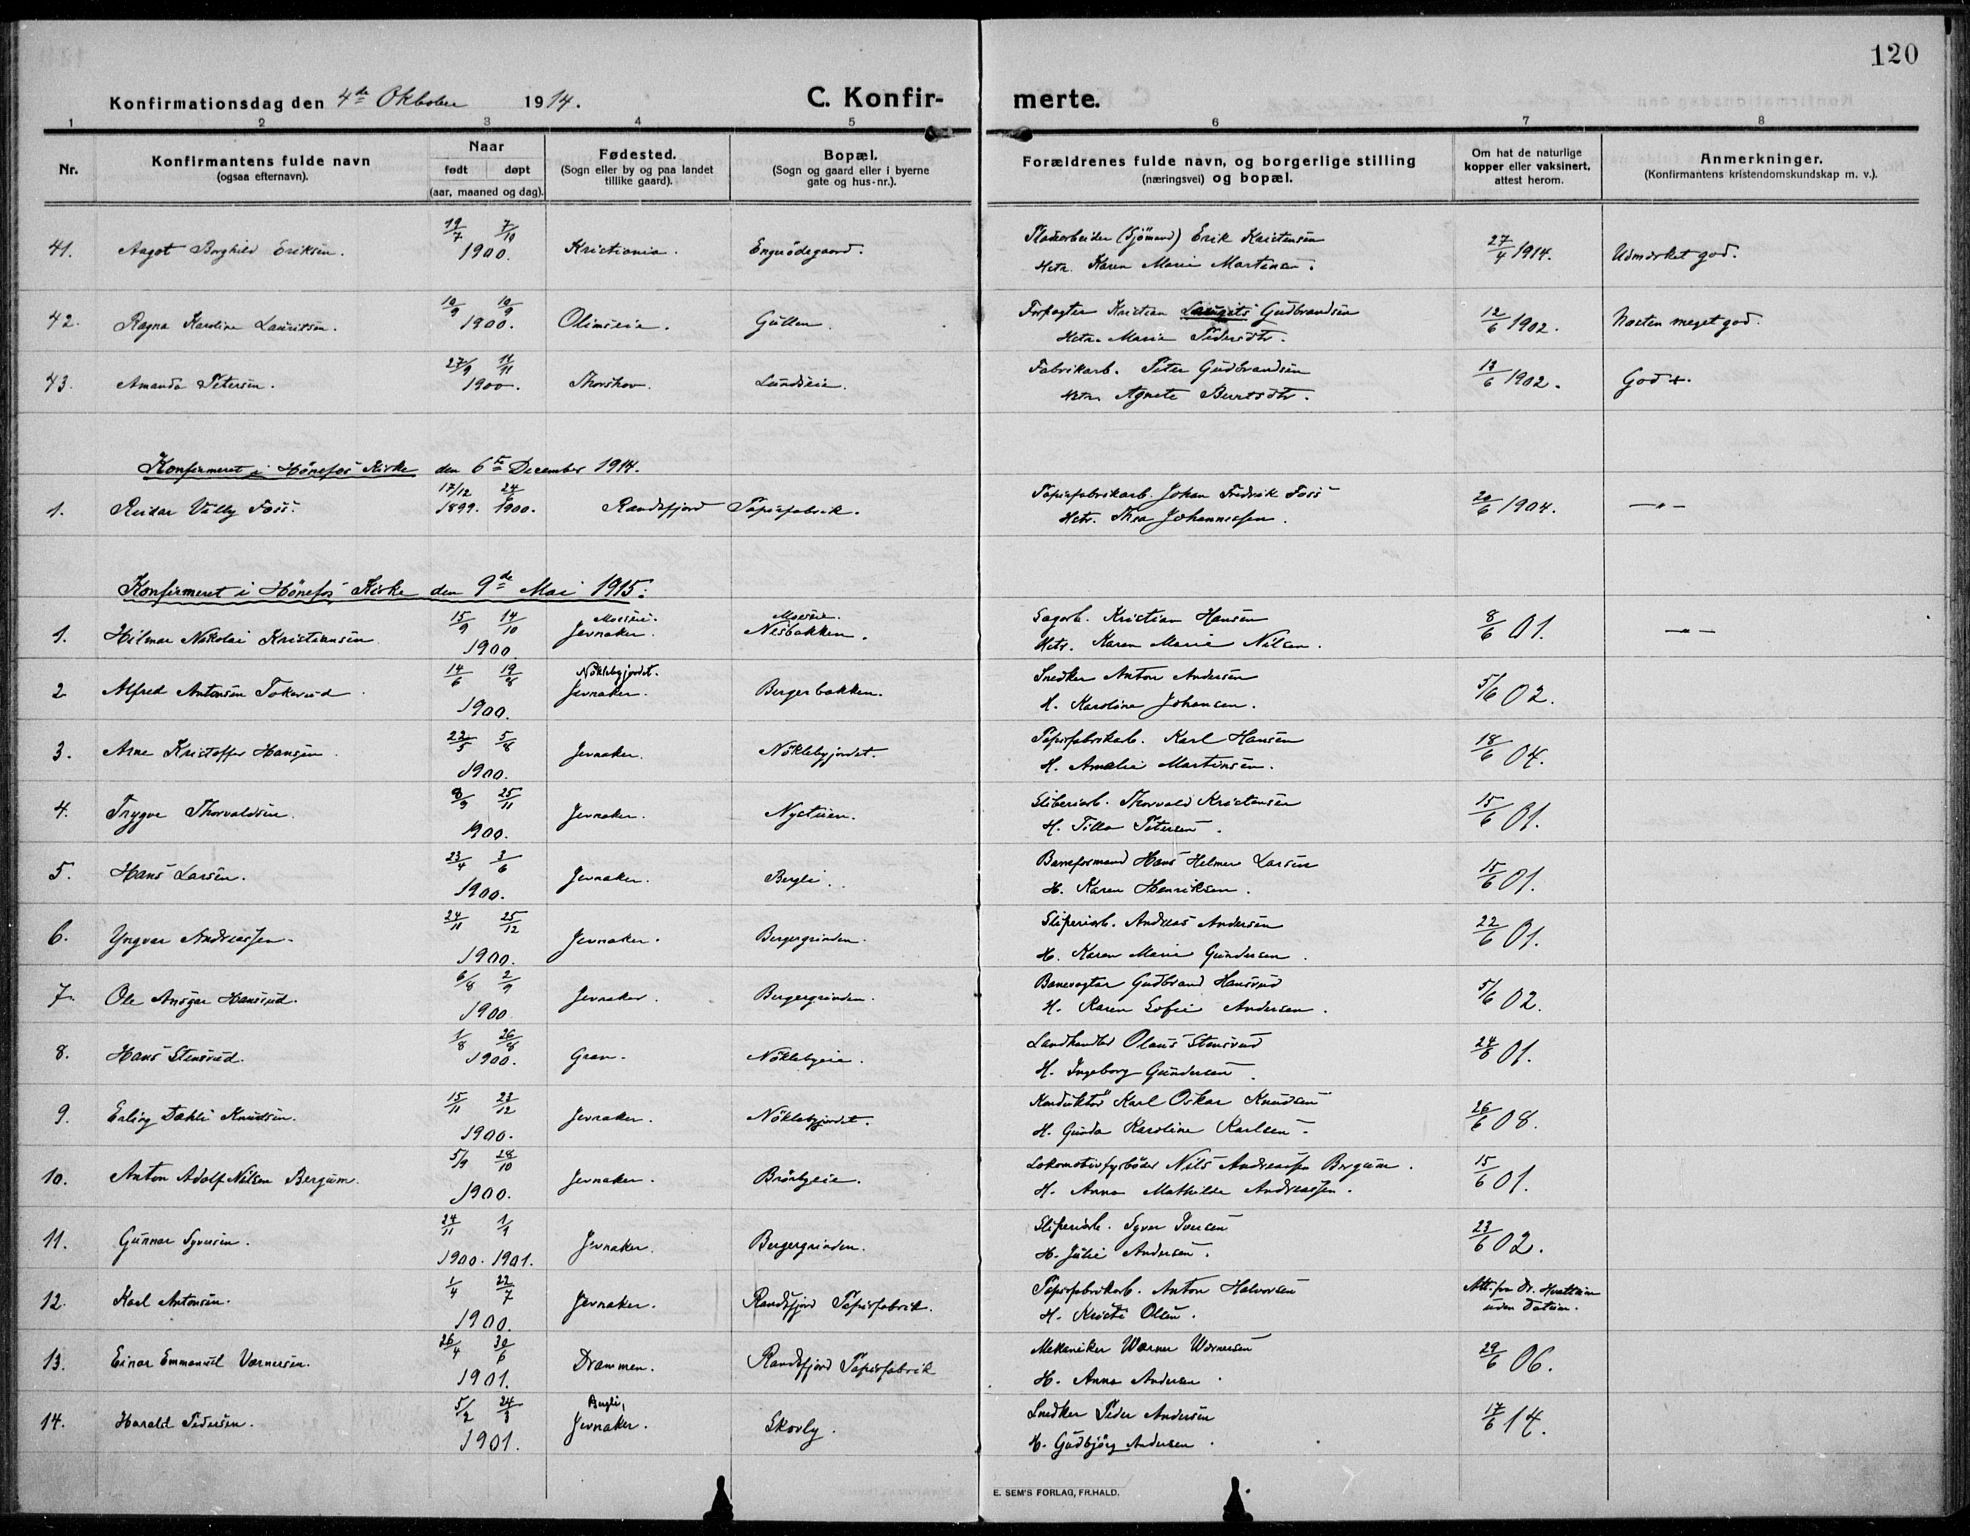 120
Konfirmationsdag den 4de Oktober 1914.
C. Konfirmerte.
1 2 3 4 5 6 7 8
Nr.
Konfirmantens fulde navn
(ogsaa efternavn).
Naar
født døpt
(aar, maaned og dag).
Fødested.
(Sogn eller by og paa landet
tillike gaard).
Bopæl.
(Sogn og gaard eller i byerne
gate og hus-nr.).
Forældrenes fulde navn, og borgerlige stilling
(næringsvei) og bopæl.
Om hat de naturlige
kopper eller vaksinert,
attest herom.
Anmerkninger.
(Konfirmantens kristendomskundskap m. v.).
41. Aagot Borghild Eriksen. 19/7 7/10 1900. Kristiania. Engnødegaard. (Sjømand) Erik Kristensen 27/4 1914. Udmærket god.
Htr. Karen Marie Martinsen.
42. Ragna Karoline Lauritsen. 10/9 1900. Olimseie. Gullen. Forpagter Kristian Laurits Gudbrandsen 12/6 1902. Næsten meget god.
Htr. Marie Pedersdtr.
43. Amanda Petersen. 27/9 11/11 1900. Thorshov. Lundseie. Fabrikarb. Peter Gudbrandsen 13/6 1902. God +.
Htr. Agnete Berntsdtr.
Konfirmeret i Hønefos Kirke den 6te December 1914.
1. Reidar Villy Foss. 17/12 1899. 24/6 1900. Randsfjord Papirfabrik. Papirfabrikarb. Johan Fredrik Foss 20/6 1904. — " —
Htr. Thea Johannessen.
Konfirmeret i Hønefos Kirke den 9de Mai 1915:
1. Hilmar Nikolai Kristiansen. 15/9 14/10 1900. Moeseie. Jevnaker. Moeseie. Nesbakken. Sagarb. Kristian Hansen 8/6 01. — " —
Htr. Karen Marie Nilsen.
2 Alfred Antonsen Tokerud 14/6 19/8 1900. Nøklebyjordet. Jevnaker. Bergerbakken. Snedker Anton Andersen 5/6 02.
H. Karoline Johansen.
3. Arne Kristoffer Hansen 22/5 5/8 1900. Jevnaker. Nøklebyjordet. Papirfabrikarb. Karl Hansen 18/6 04.
H. Amalie Martinsen.
4. Trygve Thorvaldsen. 9/9 25/11 1900. Jevnaker. Nystuen. Sliberiarb. Thorvald Kristensen 15/6 01.
H. Tilla Petersen.
5. Hans Larsen. 23/4 3/6 1900. Jevnaker. Bergli. Baneformand Hans Helmer Larsen 15/6 01.
H. Karen Henriksen.
6. Yngvar Andreassen. 24/11 25/12 1900. Jevnaker. Bergergrinden. Sliperiarb. Andreas Andersen 22/6 01.
H. Karen Marie Gundersen.
7. Ole Ansgar Hansrud. 6/8 2/9 1900 Jevnaker. Bergergrinden. Banevogter Gudbrand Hansrud 5/6 02.
H. Karen Sofie Andersen.
8. Hans Stensrud. 1/8 26/8 1900. Gran. Nøklebyeie. Landhandler Olaus Stensrud 24/6 01.
H. Ingeborg Gundersen.
9. Erling Dæhli Knudsen. 15/11 23/12 1900. Jevnaker. Nøklebyjordet. Konduktør Karl Oskar Knudsen 26/6 08.
H. Gunda Karoline Karlsen.
10. Anton Adolf Nilsen Bergum. 5/9 28/10 1900. Jevnaker. Brørbyeie. Lokomotivfyrbøder Nils Andreassen Bergum. 15/6 01.
H. Anna Mathilde Andreassen.
11. Gunnar Syversen. 24/11 1/1 1900. 1901. Jevnaker. Bergergrinden. Sliperiarb. Syver Iversen 23/6 02.
H. Julie Andersen.
12. Karl Antonsen. 1/4 22/7 1900. Jevnaker. Randsfjord Papirfabrik. Papirfabrikarb. Anton Halvorsen Att. fra Dr.
H. Kristi Olsen. uden Datum.
13. Einar Emmanuel Wærnersen. 26/4 30/6 1901. Drammen. Randsfjord Papirfabrik Mekaniker Werner Wernersen 29/6 06.
H. Anna Andersen.
14. Harald Pedersen. 5/2 24/3 1901. Bergli, Jevnaker. Skovly. Snedker Peder Andersen 17/6 14.
H. Gudbjørg Andersen.
E. SEM'S FORLAG, FR.HALD.